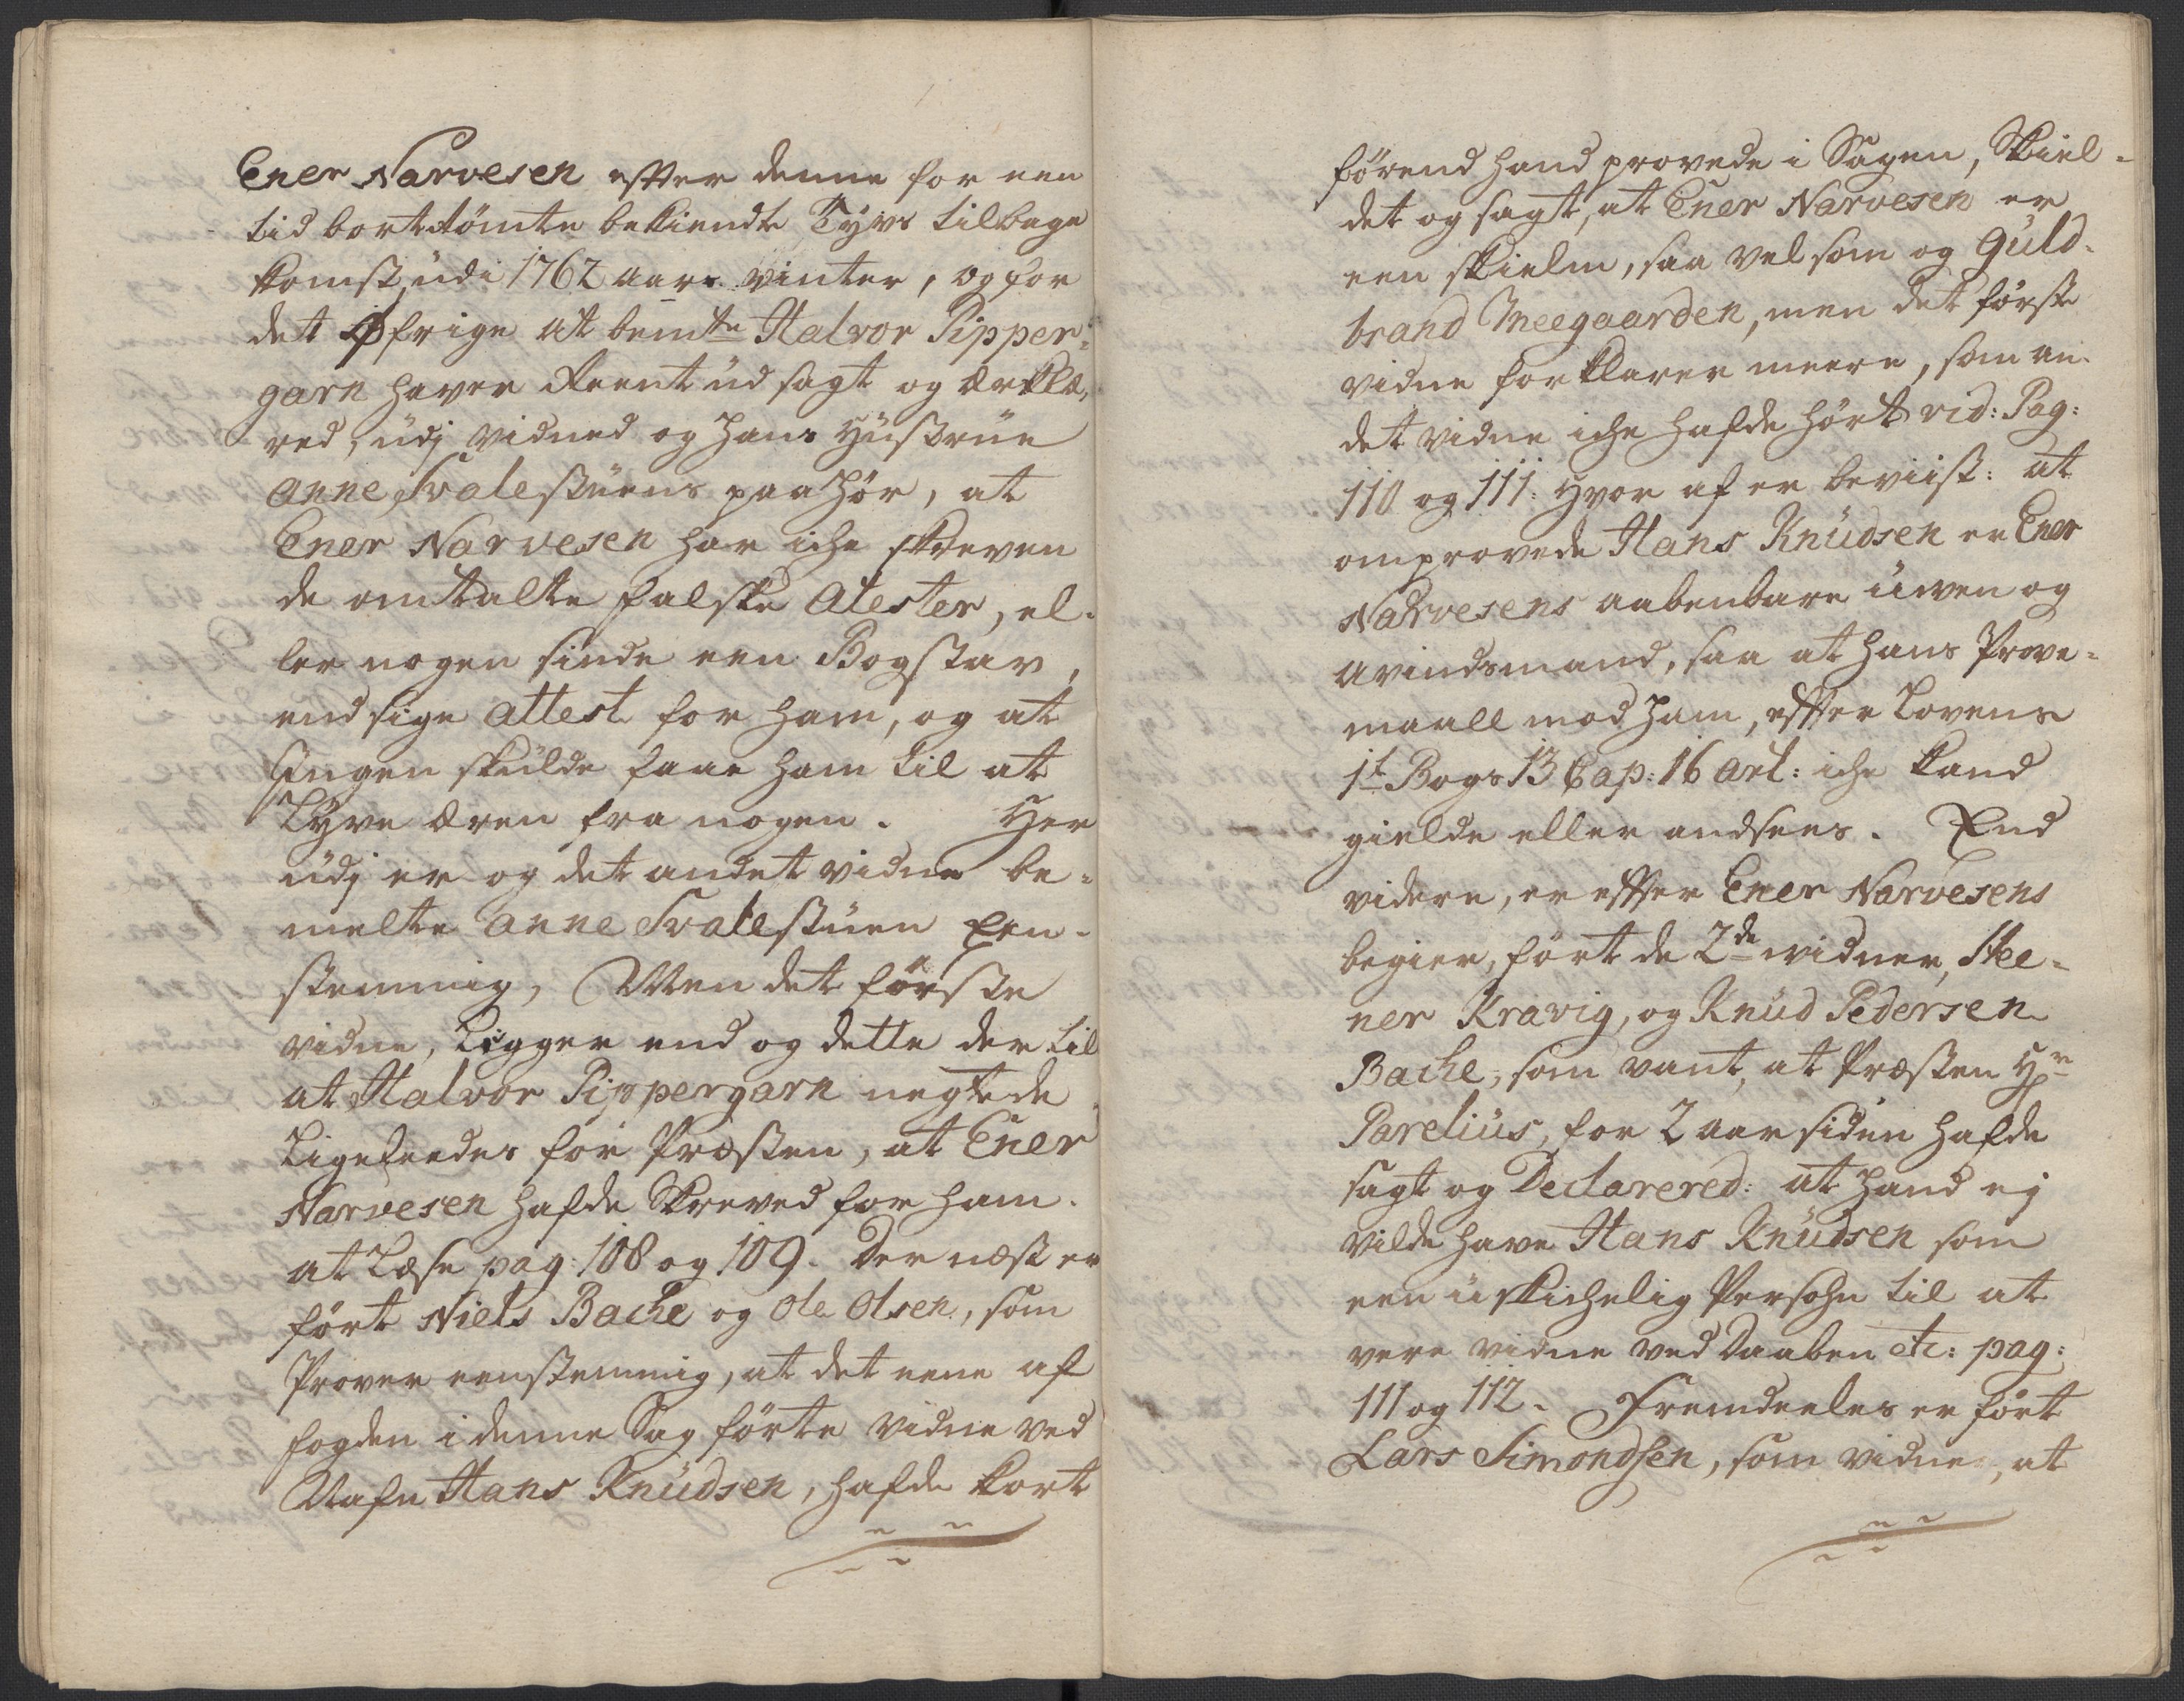 Ener Narvesen efter denne for een
tid bortrömte bekiendte Tyvs tilbage
komst, üdi 1762 aars vinter, og for
det öfrige at bemte Halvor Pipper-
garn haver reent üdsagt og Erklæ-
red, üdj vidned og hans Hüstrüe
Anne Svalestüens paahör, at
Ener Narvesen har iche skreven
de omtalte falske Atester, el-
ler nogen sinde een Bogstav,
end sige attest for ham, og at
Ingen skulde faae ham til at
Lyve æren fra nogen. Her
üdj er og det andet vidne be-
melte Anne Svalestüen Een-
stemmig, Men det förste
vidne, Ligger end og dette der til
at Halvor Pippergarn negtede
Ligeleedes for Præsten, at Ener
Narvesen hafde Skreved for ham.
at Læse pag: 108 og 109. Der næst er
fört Niels Bache og Ole Olsen, som
Prover eenstemmig, at det eene af
fogden i denne Sag förte vidne ved
Nafn Hans Knüdsen, hafde kort
förend hand provede i Sagen, Skiel-
det og sagt, at Ener Narvesen er
een skielm, saa vel som og Güld-
brand Meegaarden, men det förste
vidne forklarer meere, som an-
det vidne iche hafde hört vid: Pag:
110 og 111: Hvor af er beviist: at
omprovede Hans Knüdsen er Ener
Narvesens aabenbare üwen og
Avindsmand, saa at hans Prove-
maall mod ham, efter Lovens
1t Bogs 13 Cap: 16 Art: iche kand
gielde eller andsees. End
videre, er efter Ener Narvesens
begier, fört de 2de widner, Stee-
ner Kravig, og Knüd Pedersen
Bache, som vant, at Præsten Hr
Parelius, for 2 aar siden hafde
sagt og Declarered: at hand ej
vilde have Hans Knüdsen som
een üskichelig Persohn til at
vere vidne ved Daaben etc: pag:
111 og 112. Fremdeeles er fört
Lars Simondsen, som vidner, at